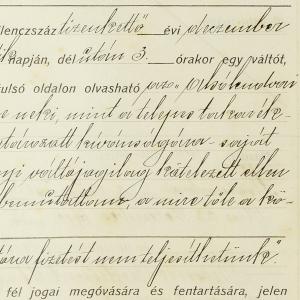 lenczszáz tizenkettő évi deczember
napján, dél után 3. órakor egy váltót,
ulsó oldalon olvasható az „Alsólendvai
e neki, mint a telepes takarék-
határozott kívánságára saját
váltójogilag kötelezett ellen
bemutattam, a mire tőle a kö-
fizetést nem teljesíthetünk".
fél jogai megóvására és fentartására, jelen